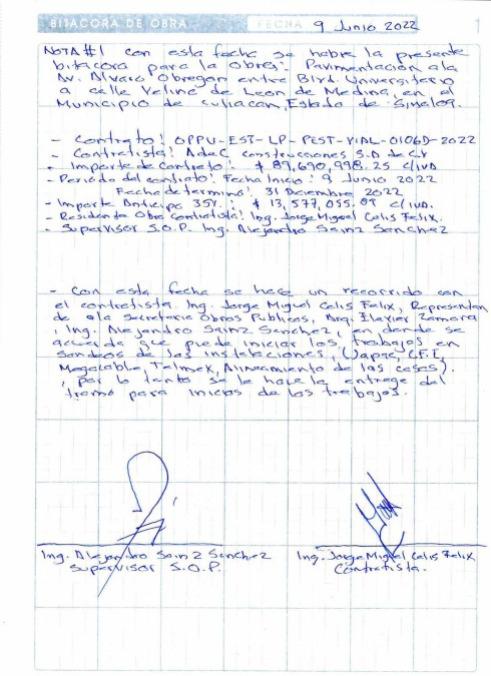 BITACORA DE OBRA FECHA 9 Junio 2022 1
NOTA #1 con esta fecha se habre la presente
bitacora para la obres: Pavimentación a la
Av. Alvaro Obregon entre Blvd. Universitario
a calle Velina de Leon de Medina, en el
Municipio de culiacan, Estado de Sinaloa.
- Contrato: OPPU-EST-LP-PEST-VIAL-0106D-2022
- Contratista: AdeC construcciones S.A de C.V
- Importe de Contrato: $ 89,690,998.25 c/IVA.
- Periodo del contrato: Fecha Inicio: 9 Junio 2022
Fecha de termino: 31 Diciembre 2022
- Importe Anticipo 35%: $ 13,577,055.09 c/IVA.
- Residente Obra Contratista: Ing. Jorge Miguel Celis Felix.
- Supervisor S.O.P. Ing. Alejandro Sainz Sanchez
- Con esta fecha se hace un recorrido con
el contratista Ing. Jorge Miguel Celis Felix, Representan
de ala Secretaria Obras Publicas, Arq. Zamora
, Ing. Alejandro Sainz Sanchez, en donde se
acuerda que puede iniciar los trabajos en
sondeos de las instalaciones, (Japac, C.F.E,
Megacable, Telmex, Alineamiento de las casas).
, por lo tanto se le hace la entrega del
tramo para inicios de los trabajos.
Ing. Alejandro Sainz Sanchez Ing. Jorge Miguel Celis Felix
Supervisor S.O.P. Contratista.